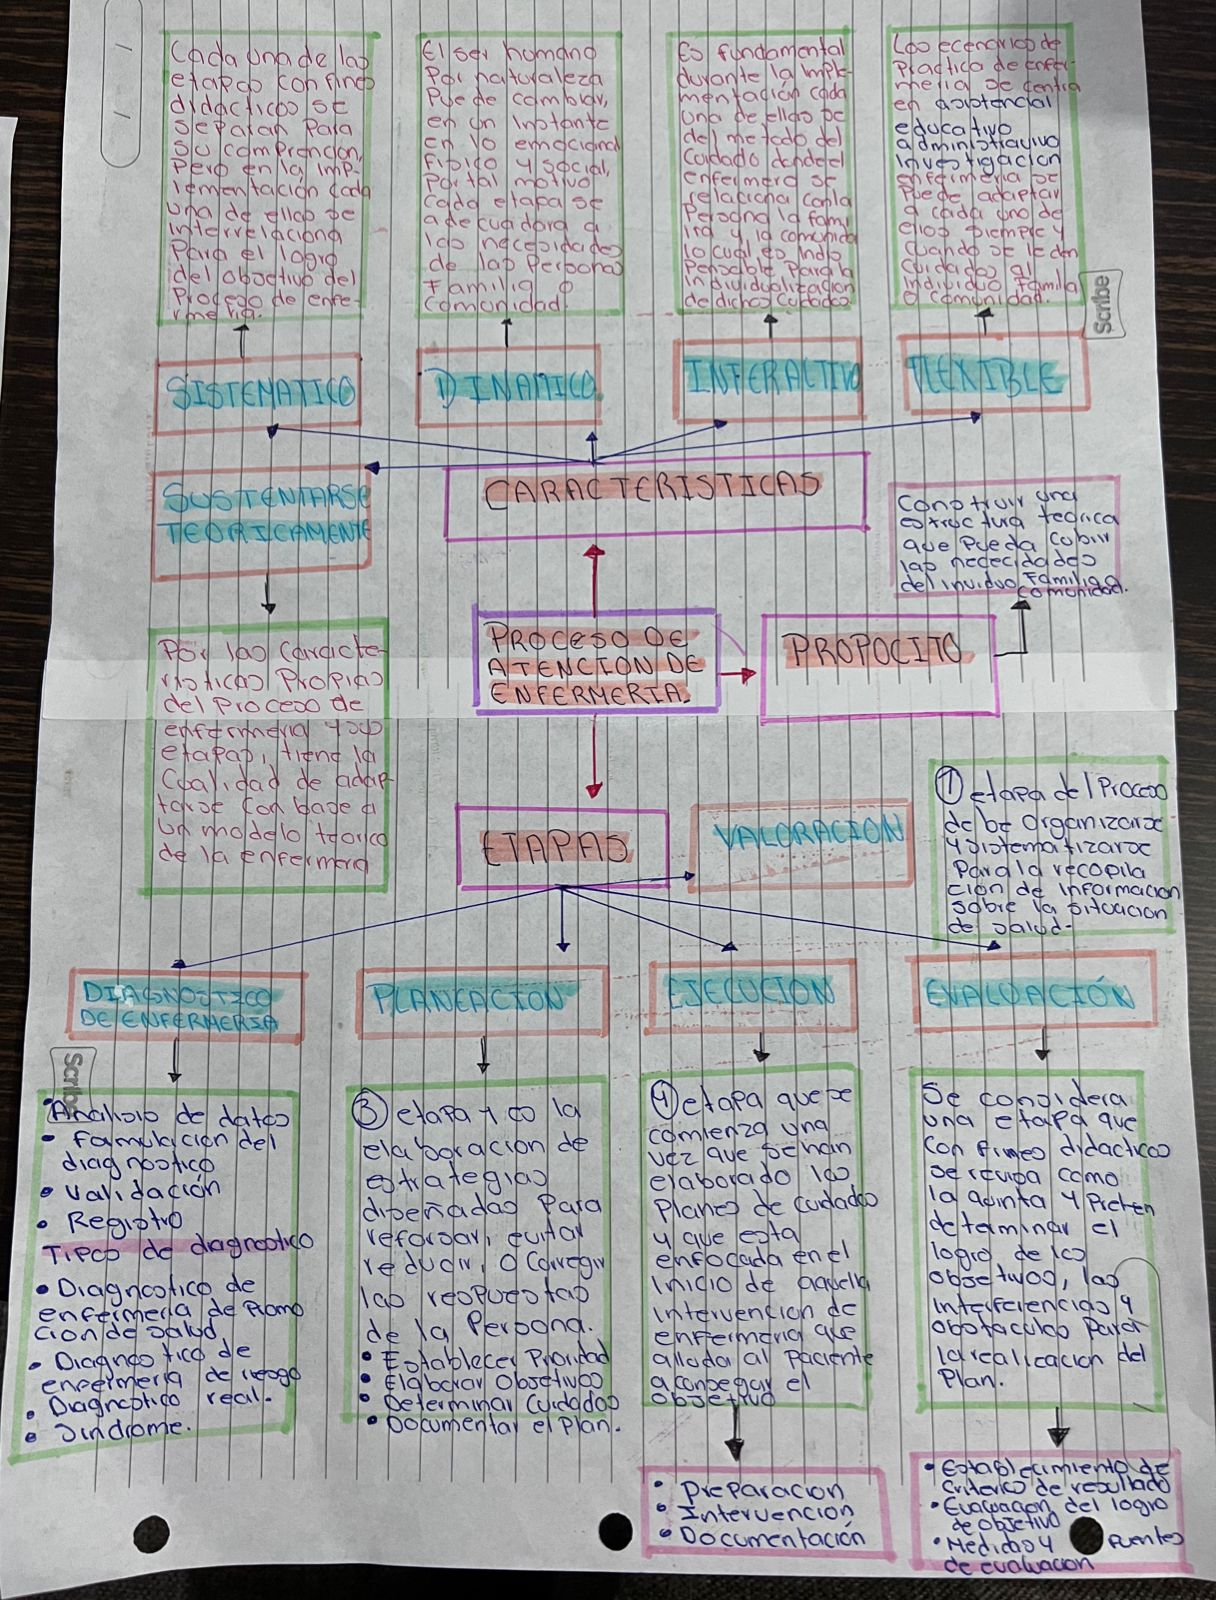 Cada una de las
etapas con fines
didacticos se
separan para
su comprencion,
pero en la imp-
lementación cada
una de ellas se
interrelaciona
Para el logro
del objetivo del
Proceso de enfe-
rmeria.
El ser humano
Por naturaleza
Puede cambiar,
en un instante
en lo emocional
fisico y social,
Por tal motivo
cada etapa se
adecuadara a
las necesidades
de las Personas
Familia o
Comunidad.
Es fundamental
durante la imple-
mentación cada
una de ellas se
del metodo del
cuidado donde el
enfermero se
relaciona con la
Persona la fami
lia y la comunidad
lo cual es indis
Pensable Para la
individualización
de dichos cuidados
Los ecenarios de
Practica de enfer-
meria se centra
en asistencial
educativo
administrativo
investigacion
enfermeria se
Puede adaptar
a cada uno de
ellos siempre y
cuando se le den
cuidados al
individuo familia
o comunidad.
Scribe
SISTEMATICO
DINAMICO
INTERACTIVO
FLEXIBLE
SUSTENTARSE
TEORICAMENTE
CARACTERISTICAS
Construir una
estructura teorica
que Pueda cubrir
las nececidades
del inviduo Familia o
comunidad.
PROCESO DE
ATENCION DE
ENFERMERIA.
PROPOCITO
Por las caracte-
risticas Propias
del Proceso de
enfermeria y sus
etapas, tiene la
cualidad de adap-
tarse con base a
un modelo teorico
de la enfermera
ETAPAS
VALORACION
1 etapa del Proceso
debe organizarse
y sistematizarse
Para la recopila
ción de informacion
sobre la situacion
de salud.
DIAGNOSTICO
DE ENFERMERIA
PLANEACION
EJECUCION
EVALUACIÓN
Scribe
Analisis de datos
• Formulacion del
diagnostico
• Validación
• Registro
Tipos de diagnostico
• Diagnostico de
enfermeria de Promo
cion de salud
• Diagnostico de
enfermeria de riesgo
• Diagnostico real.
• Sindrome.
3 etapa y es la
elaboracion de
estrategias
diseñadas Para
reforsar, evitar
reducir, o corregir
las respuestas
de la Persona.
• Establecer Prioridad
• Elaborar Objetivos
• Determinar Cuidados
• Documentar el Plan.
4 etapa que se
comienza una
vez que se han
elaborado los
Planes de cuidados
y que esta
enfocada en el
inicio de aquella
intervencion de
enfermeria que
alluda al paciente
a conseguir el
objetivo
• Preparacion
• Intervencion
• Documentación
Se considera
una etapa que
con fines didacticos
se ocupa como
la quinta y Preten
determinar el
logro de los
objetivos, las
interferencias y
obstaculos para
la realicacion del
Plan.
• Establecimiento de
criterios de resultado
• Evaluacion del logro
de objetivo
• Medidas y fuentes
de evaluacion